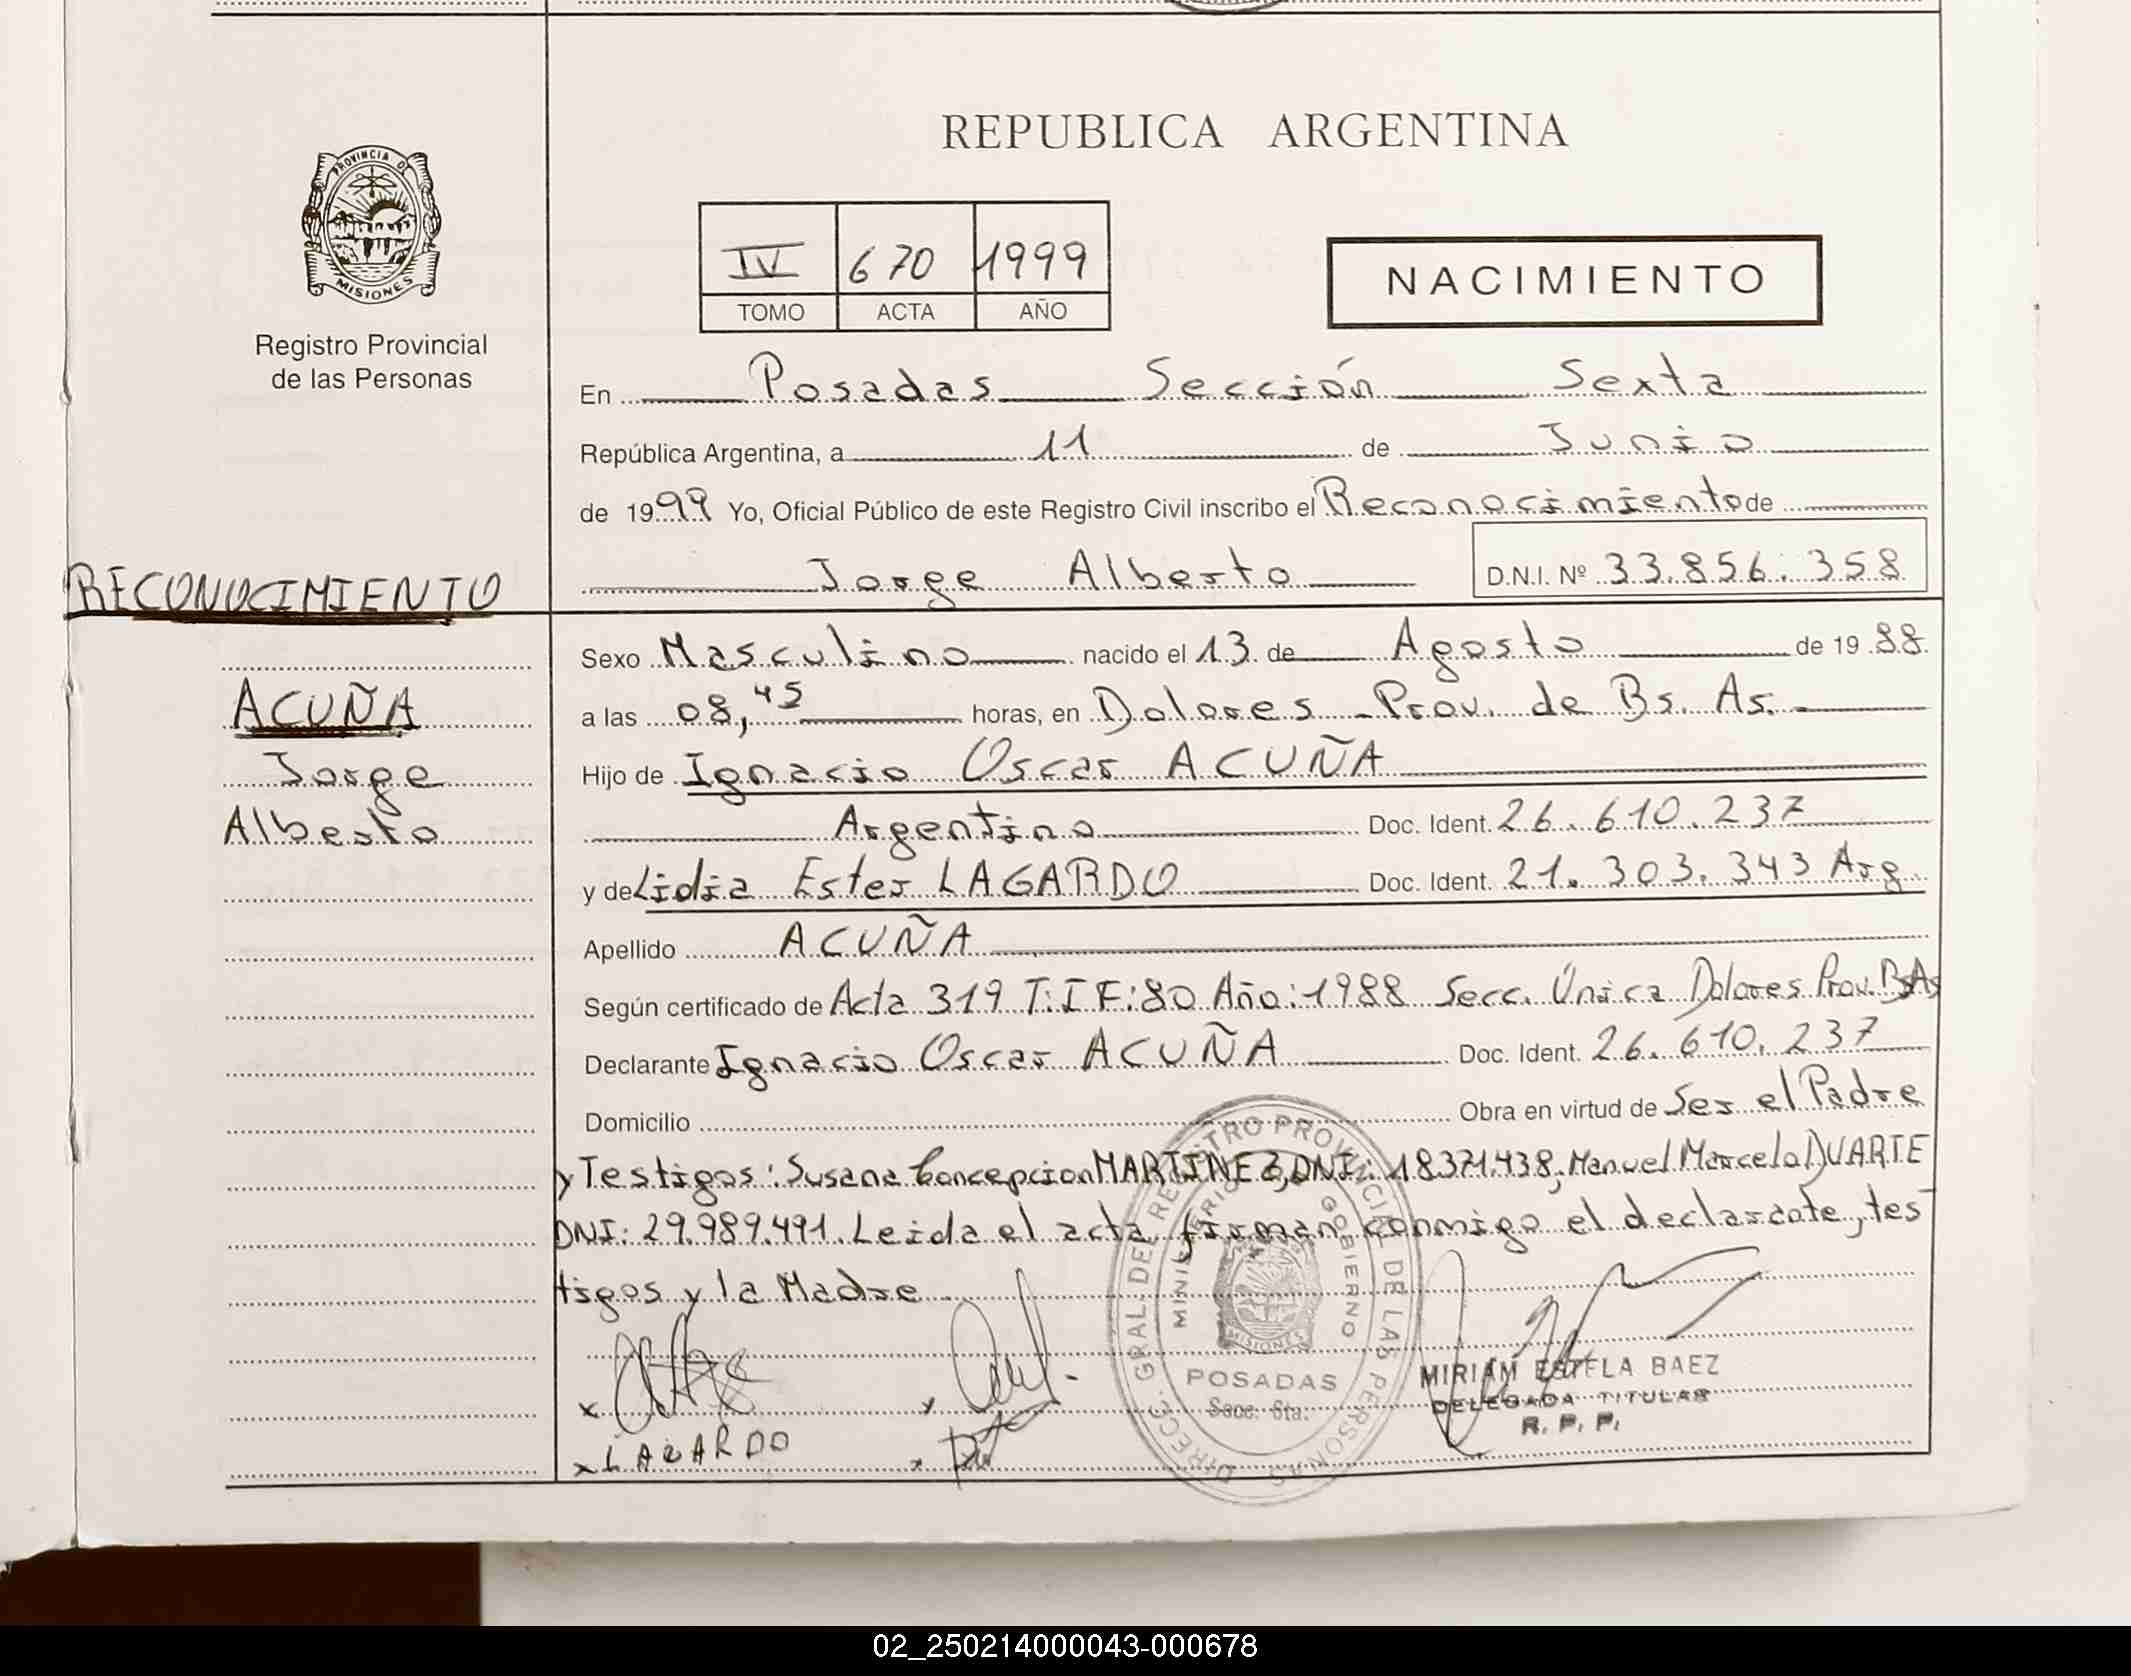 REPUBLICA ARGENTINA
PROVINCIA DE
MISIONES
Registro Provincial
de las Personas
IV 670 1999
TOMO ACTA AÑO
NACIMIENTO
En Posadas Sección Sexta
República Argentina, a 11 de Junio
de 1999 Yo, Oficial Público de este Registro Civil inscribo el Reconocimiento de
Jorge Alberto D.N.I. Nº 33.856.358
RECONOCIMIENTO
ACUÑA
Jorge
Alberto
Sexo Masculino nacido el 13 de Agosto de 1988
a las 08,45 horas, en Dolores - Prov. de Bs. As.
Hijo de Ignacio Oscar ACUÑA
Argentino Doc. Ident. 26.610.237
y de Lidia Ester LAGARDO Doc. Ident. 21.303.343 Arg.
Apellido ACUÑA
Según certificado de Acta 319 T:I F:80 Año:1988 Secc. Única Dolores Prov. BsAs
Declarante Ignacio Oscar ACUÑA Doc. Ident. 26.610.237
Domicilio Obra en virtud de Ser el Padre
y Testigos: Susana Concepcion MARTINEZ, DNI: 18371.438, Manuel Marcelo DUARTE
DNI: 29.989.491. Leida el acta firman conmigo el declarante, tes
tigos y la Madre
DIRECC. GRAL. DEL REGISTRO PROVINCIAL DE LAS PERSONAS
MINISTERIO DE GOBIERNO
MISIONES
POSADAS
Secc. 6ta.
MIRIAM ESTELA BAEZ
DELEGADA TITULAR
R. P. P.
x
x LAGARDO
02_250214000043-000678